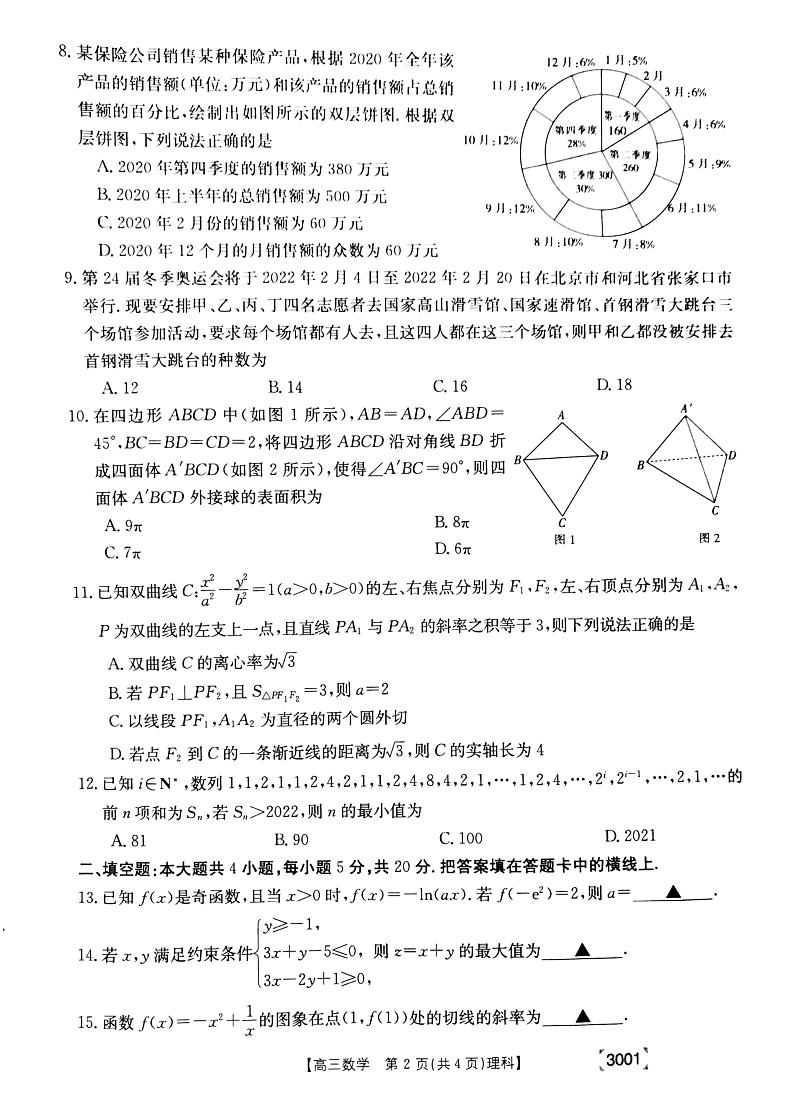 8. 某保险公司销售某种保险产品,根据 2020 年全年该
产品的销售额(单位:万元)和该产品的销售额占总销
售额的百分比,绘制出如图所示的双层饼图. 根据双
层饼图,下列说法正确的是
A. 2020 年第四季度的销售额为 380 万元
B. 2020 年上半年的总销售额为 500 万元
C. 2020 年 2 月份的销售额为 60 万元
D. 2020 年 12 个月的月销售额的众数为 60 万元
12 月:6%
1 月:5%
2 月
3 月:6%
4 月:6%
5 月:9%
6 月:11%
7 月:8%
8 月:10%
9 月:12%
10 月:12%
11 月:10%
第一季度
160
第二季度
260
第三季度 300
30%
第四季度
28%
9. 第 24 届冬季奥运会将于 2022 年 2 月 4 日至 2022 年 2 月 20 日在北京市和河北省张家口市
举行. 现要安排甲、乙、丙、丁四名志愿者去国家高山滑雪馆、国家速滑馆、首钢滑雪大跳台三
个场馆参加活动,要求每个场馆都有人去,且这四人都在这三个场馆,则甲和乙都没被安排去
首钢滑雪大跳台的种数为
A. 12 B. 14 C. 16 D. 18
10. 在四边形 ABCD 中(如图 1 所示),AB=AD,∠ABD=
45°,BC=BD=CD=2,将四边形 ABCD 沿对角线 BD 折
成四面体 A′BCD(如图 2 所示),使得∠A′BC=90°,则四
面体 A′BCD 外接球的表面积为
A. 9π B. 8π
C. 7π D. 6π
A
B
D
C
图 1
A′
B
D
C
图 2
11. 已知双曲线 C:x²/a²−y²/b²=1(a>0,b>0)的左、右焦点分别为 F₁,F₂,左、右顶点分别为 A₁,A₂,
P 为双曲线的左支上一点,且直线 PA₁ 与 PA₂ 的斜率之积等于 3,则下列说法正确的是
A. 双曲线 C 的离心率为√3
B. 若 PF₁⊥PF₂,且 S△PF₁F₂=3,则 a=2
C. 以线段 PF₁,A₁A₂ 为直径的两个圆外切
D. 若点 F₂ 到 C 的一条渐近线的距离为√3,则 C 的实轴长为 4
12. 已知 i∈N*,数列 1,1,2,1,1,2,4,2,1,1,2,4,8,4,2,1,…,1,2,4,…,2ⁱ,2ⁱ⁻¹,…,2,1,…的
前 n 项和为 Sₙ,若 Sₙ>2022,则 n 的最小值为
A. 81 B. 90 C. 100 D. 2021
二、填空题:本大题共 4 小题,每小题 5 分,共 20 分. 把答案填在答题卡中的横线上.
13. 已知 f(x)是奇函数,且当 x>0 时,f(x)=−ln(ax). 若 f(−e²)=2,则 a=___▲___.
14. 若 x,y 满足约束条件{y≥−1, 3x+y−5≤0, 3x−2y+1≥0, 则 z=x+y 的最大值为___▲___.
15. 函数 f(x)=−x²+1/x的图象在点(1,f(1))处的切线的斜率为___▲___.
【高三数学 第 2 页(共 4 页)理科】
3001